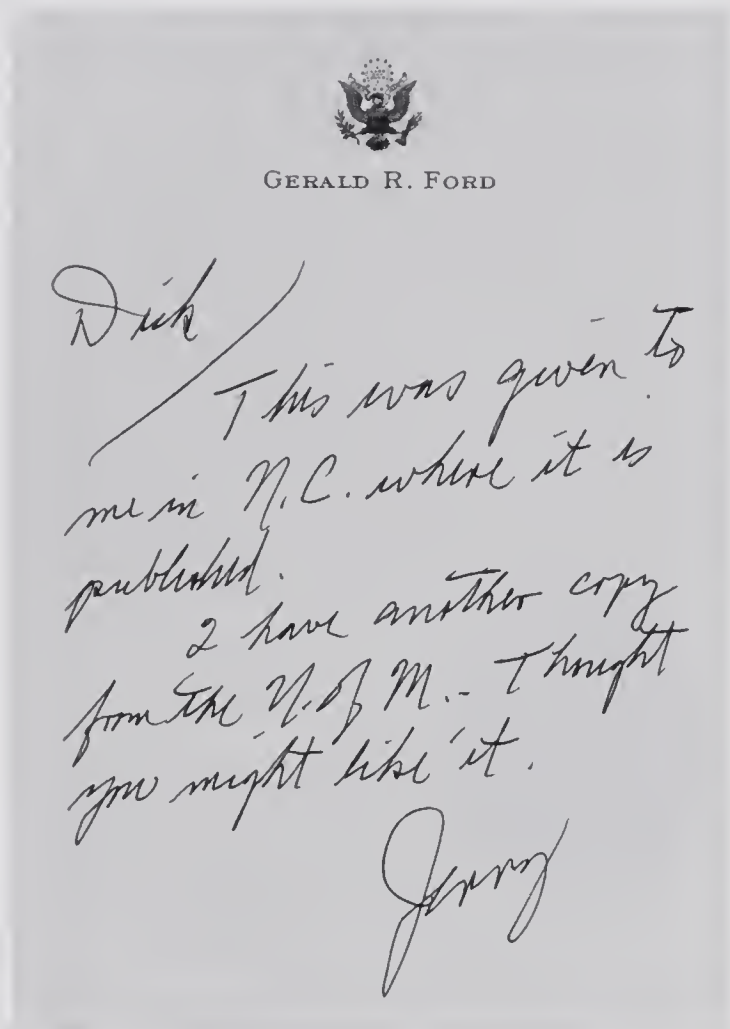 GERALD R. FORD
Dick
This was given to
me in N.C. where it is
published.
I have another copy
from the U. of M. - Thought
you might like it.
Jerry